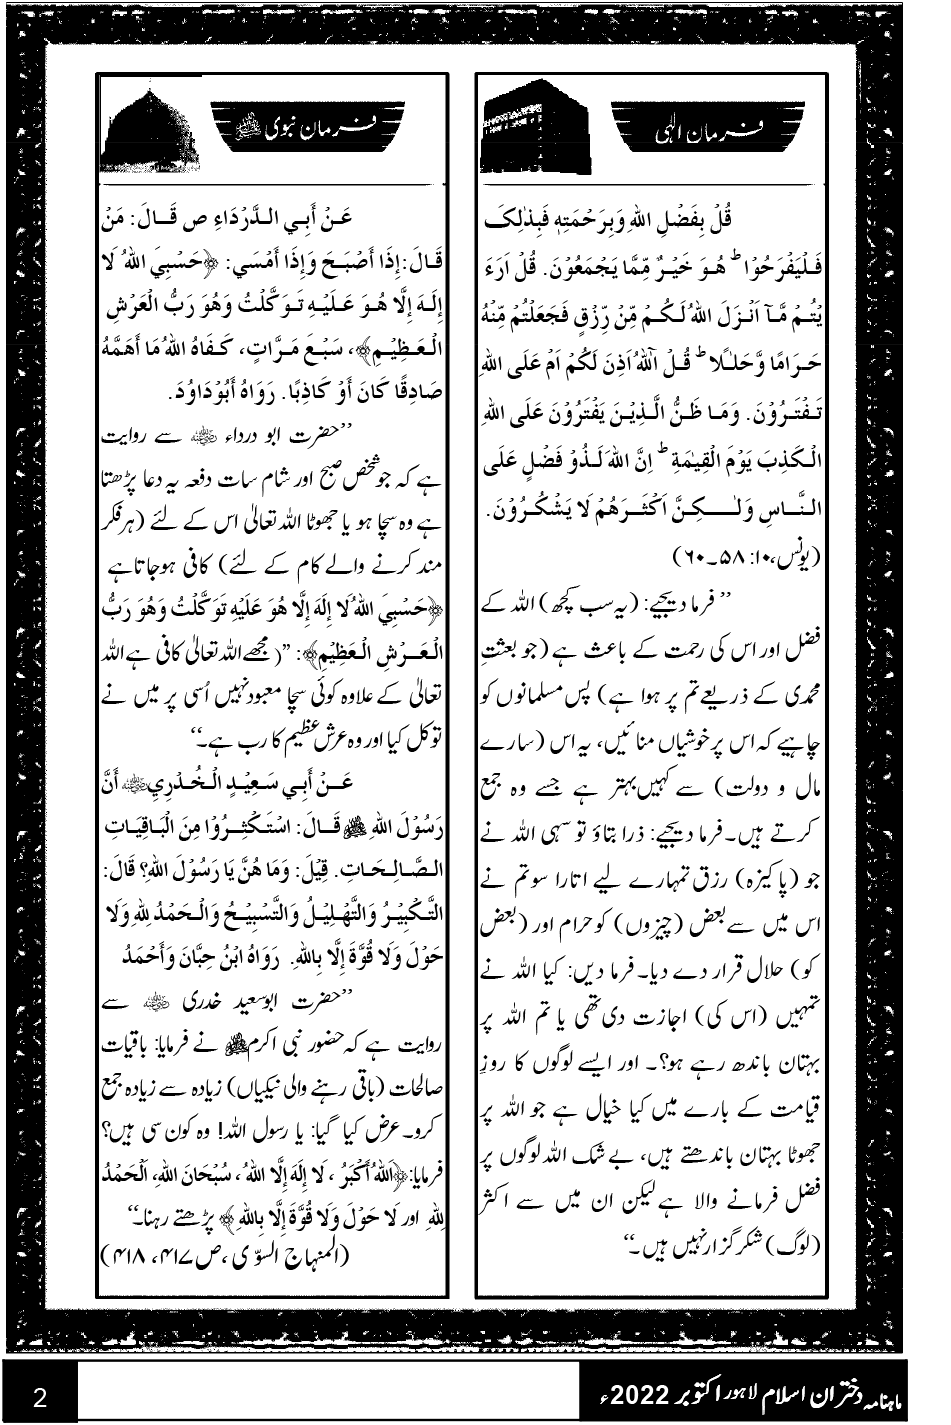 فرمان الٰہی
قُلْ بِفَضْلِ اللهِ وَبِرَحْمَتِهٖ فَبِذٰلِکَ
فَلْیَفْرَحُوْا ؕ هُوَ خَیْرٌ مِّمَّا یَجْمَعُوْنَ. قُلْ اَرَءَ
یْتُمْ مَّآ اَنْزَلَ اللهُ لَکُمْ مِّنْ رِّزْقٍ فَجَعَلْتُمْ مِّنْهُ
حَرَامًا وَّحَلٰـلًا ؕ قُلْ آٰللهُ اَذِنَ لَکُمْ اَمْ عَلَی اللهِ
تَفْتَرُوْنَ. وَمَا ظَنُّ الَّذِیْنَ یَفْتَرُوْنَ عَلَی اللهِ
الْکَذِبَ یَوْمَ الْقِیٰمَةِ ؕ اِنَّ اللهَ لَذُوْ فَضْلٍ عَلَی
النَّاسِ وَلٰـکِنَّ اَکْثَرَهُمْ لَا یَشْکُرُوْنَ.
(یونس، ۱۰: ۵۸۔۶۰)
’’ فرما دیجیے: (یہ سب کچھ) اللہ کے
فضل اور اس کی رحمت کے باعث ہے (جو بعثتِ
محمدی کے ذریعے تم پر ہوا ہے) پس مسلمانوں کو
چاہیے کہ اس پر خوشیاں منائیں، یہ اس (سارے
مال و دولت) سے کہیں بہتر ہے جسے وہ جمع
کرتے ہیں۔ فرما دیجیے: ذرا بتاؤ تو سہی اللہ نے
جو (پاکیزہ) رزق تمہارے لیے اتارا سو تم نے
اس میں سے بعض (چیزوں) کو حرام اور (بعض
کو) حلال قرار دے دیا۔ فرما دیں: کیا اللہ نے
تمہیں (اس کی) اجازت دی تھی یا تم اللہ پر
بہتان باندھ رہے ہو؟۔ اور ایسے لوگوں کا روزِ
قیامت کے بارے میں کیا خیال ہے جو اللہ پر
جھوٹا بہتان باندھتے ہیں، بے شک اللہ لوگوں پر
فضل فرمانے والا ہے لیکن ان میں سے اکثر
(لوگ) شکر گزار نہیں ہیں۔‘‘
فرمان نبوی ﷺ
عَنْ أَبِي الدَّرْدَاءِ ص قَالَ: مَنْ
قَالَ: إِذَا أَصْبَحَ وَإِذَا أَمْسَي: ﴿حَسْبِيَ اللهُ لَا
إِلَهَ إِلَّا هُوَ عَلَيْهِ تَوَکَّلْتُ وَهُوَ رَبُّ الْعَرْشِ
الْعَظِيْمِ﴾، سَبْعَ مَرَّاتٍ، کَفَاهُ اللهُ مَا أَهَمَّهُ
صَادِقًا کَانَ أَوْ کَاذِبًا. رَوَاهُ أَبُوْدَاوُدَ.
’’حضرت ابو درداء رضی اللہ عنہ سے روایت
ہے کہ جو شخص صبح اور شام سات دفعہ یہ دعا پڑھتا
ہے وہ سچا ہو یا جھوٹا اللہ تعالیٰ اس کے لئے (ہر فکر
مند کرنے والے کام کے لئے) کافی ہوجاتاہے
﴿حَسْبِيَ اللهُ لَا إِلَهَ إِلَّا هُوَ عَلَيْهِ تَوَکَّلْتُ وَهُوَ رَبُّ
الْعَرْشِ الْعَظِيْمِ﴾: ’’(مجھے اللہ تعالیٰ کافی ہے اللہ
تعالیٰ کے علاوہ کوئی سچا معبود نہیں اُسی پر میں نے
توکل کیا اور وہ عرش عظیم کا رب ہے۔‘‘
عَنْ أَبِي سَعِيْدٍ الْخُدْرِيِ رضی اللہ عنہ أَنَّ
رَسُوْلَ اللهِ ﷺ قَالَ: اسْتَکْثِرُوْا مِنَ الْبَاقِيَاتِ
الصَّالِحَاتِ. قِيْلَ: وَمَا هُنَّ يَا رَسُوْلَ اللهِ؟ قَالَ:
التَّکْبِيْرُ وَالتَّهْلِيْلُ وَالتَّسْبِيْحُ وَالْحَمْدُ لِلّٰهِ وَلَا
حَوْلَ وَلَا قُوَّةَ إِلَّا بِاللهِ. رَوَاهُ ابْنُ حِبَّانَ وَأَحْمَدُ
’’حضرت ابوسعید خدری رضی اللہ عنہ سے
روایت ہے کہ حضور نبی اکرم ﷺ نے فرمایا: باقیات
صالحات (باقی رہنے والی نیکیاں) زیادہ سے زیادہ جمع
کرو۔ عرض کیا گیا: یا رسول اللہ! وہ کون سی ہیں؟
فرمایا: ﴿اَللهُ أَکْبَرُ، لَا إِلَهَ إِلَّا اللهُ، سُبْحَانَ اللهِ، اَلْحَمْدُ
لِلّٰهِ اور لَا حَوْلَ وَلَا قُوَّةَ إِلَّا بِاللهِ﴾ پڑھتے رہنا۔‘‘
(المنہاج السوّی، ص ۴۱۷، ۴۱۸)
ماہنامہ دختران اسلام لاہور اکتوبر 2022ء
2